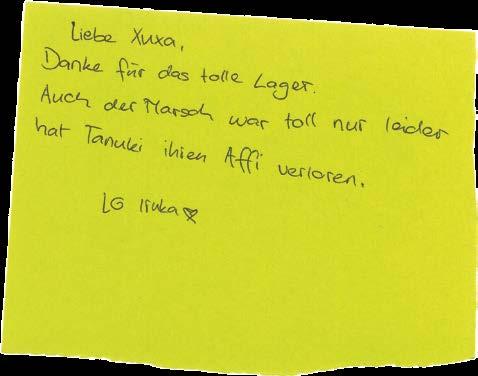 Liebe Xuxa,
Danke für das tolle Lager.
Auch der Marsch war toll nur leider
hat Tanuki ihren Affi verloren.
LG Iruka